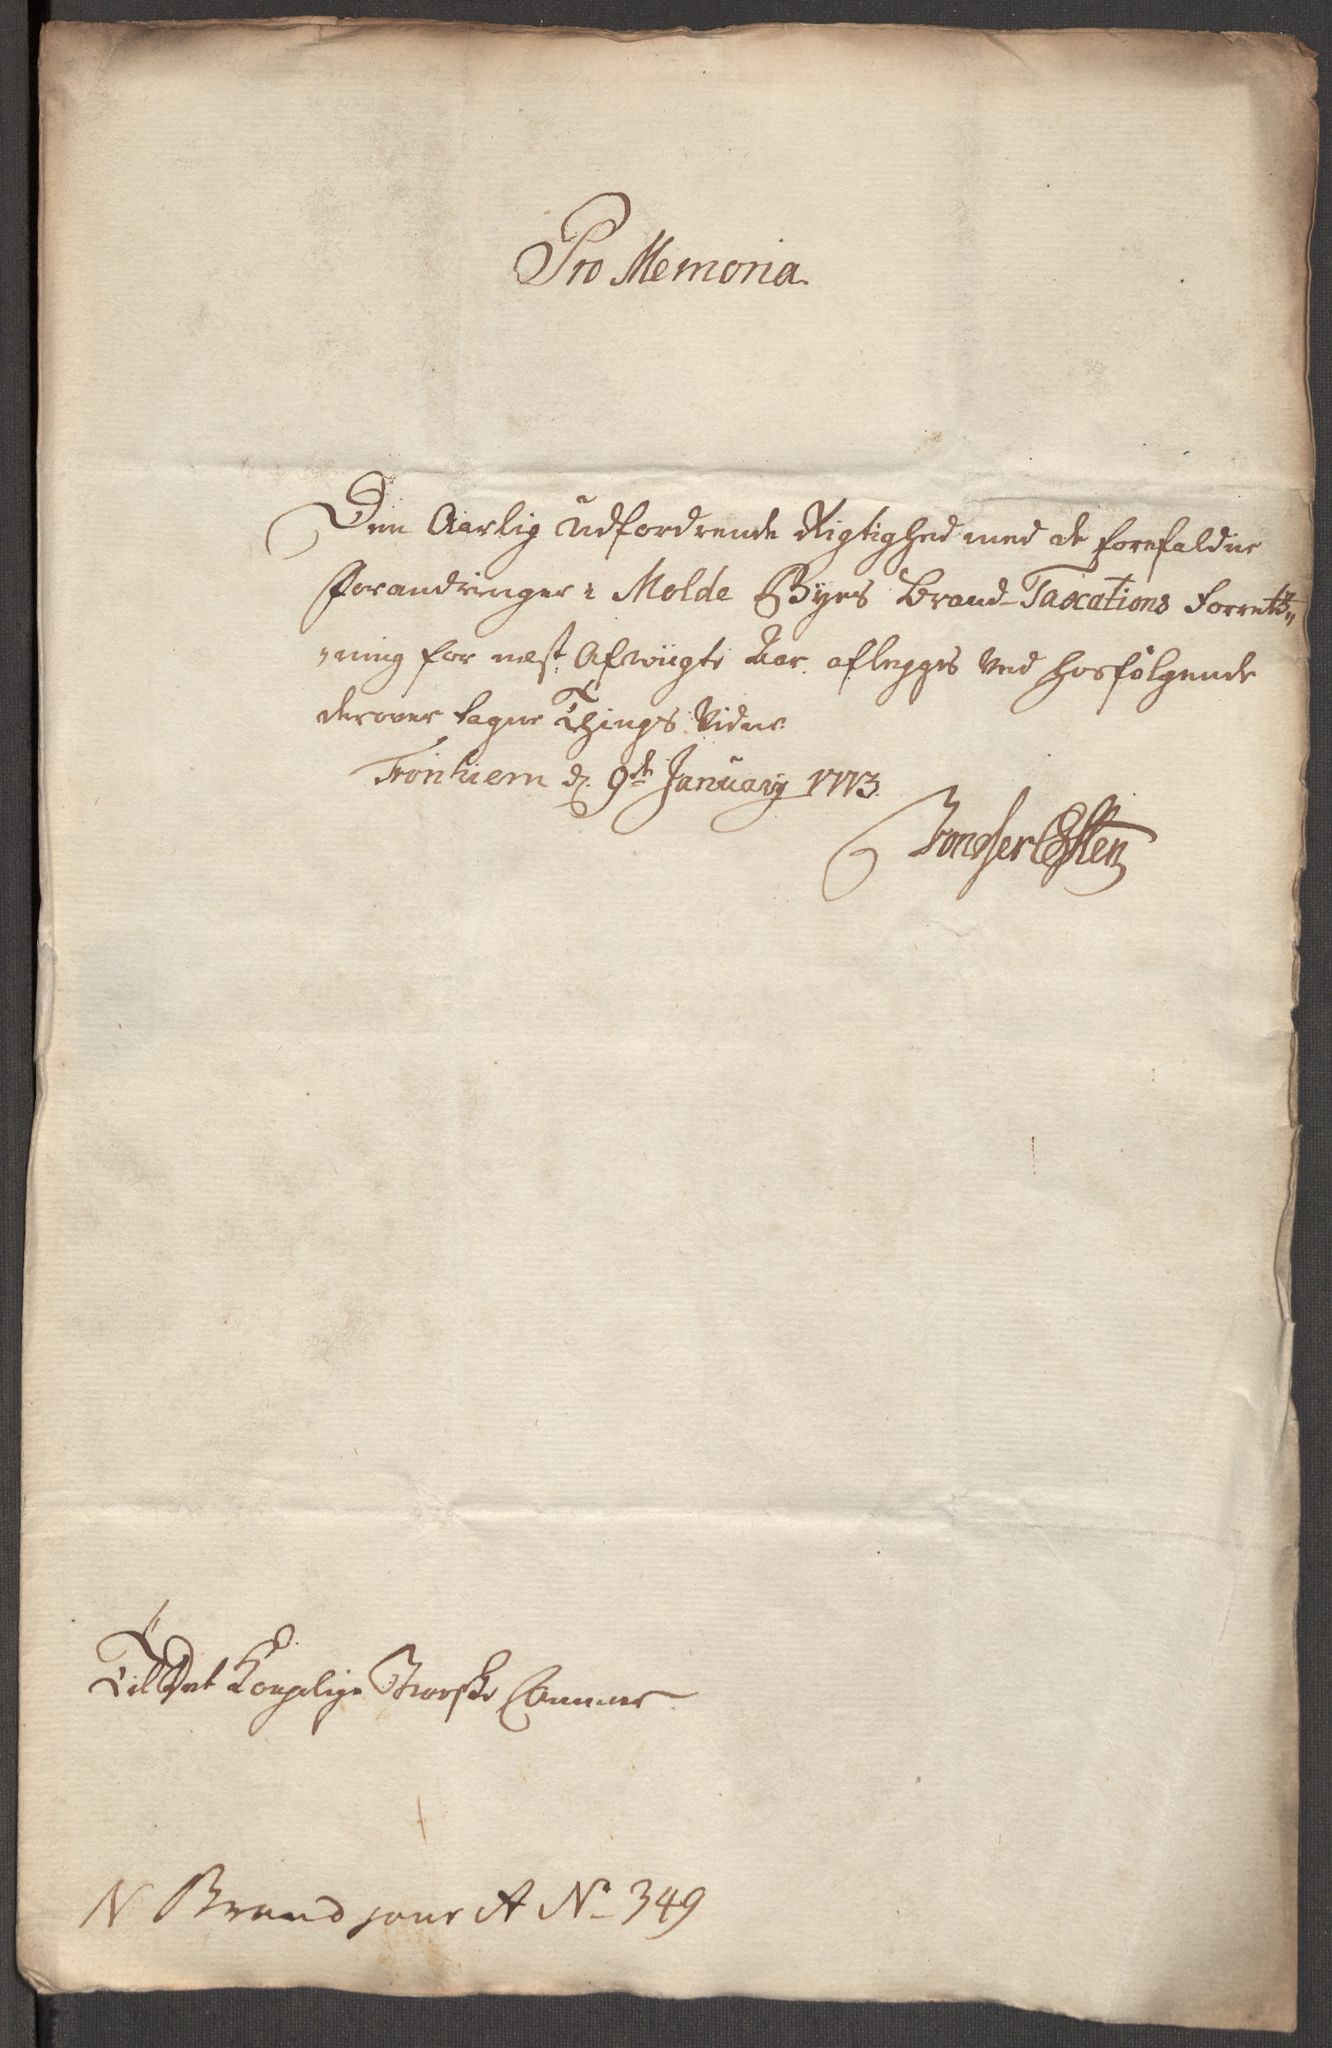 Pro Memoria.
Den Aarlig Udfordrende Rigtighed med de forefaldne
forandringer i Molde Byes Brand-Taxations Forretz„
„ning for næst Afvigte Aar, aflegges ved hosfölgende
derover tagne Things Vidne.
Tronhiem d. 9de January 1773.
Til Det Kongelige Norske Cammer.
N Brand jour A No 349